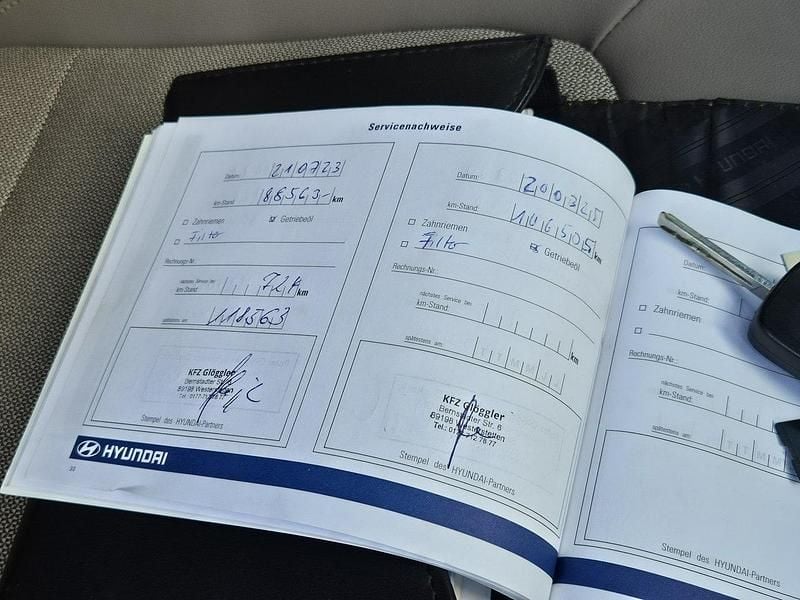 Servicenachweise
Datum: 210723
km-Stand: 88563- km
Zahnriemen Getriebeöl
Filter
Rechnungs-Nr.:
nächstes Service bei
km-Stand: km
spätestens am: 118563
KFZ Glöggler
Bernstadter Str. 6
89198 Westerstetten
Stempel des HYUNDAI-Partners
HYUNDAI
30
Datum: 200325
km-Stand: 106505 km
Zahnriemen Getriebeöl
Filter
Rechnungs-Nr.:
nächstes Service bei
km-Stand: km
spätestens am: T T M M J J
KFZ Glöggler
Bernstadter Str. 6
89198 Westerstetten
Stempel des HYUNDAI-Partners
Datum:
km-Stand:
Zahnriemen
Rechnungs-Nr.:
nächstes Service bei
km-Stand:
spätestens am: T T M M
Stempel des HYUNDAI-Partners